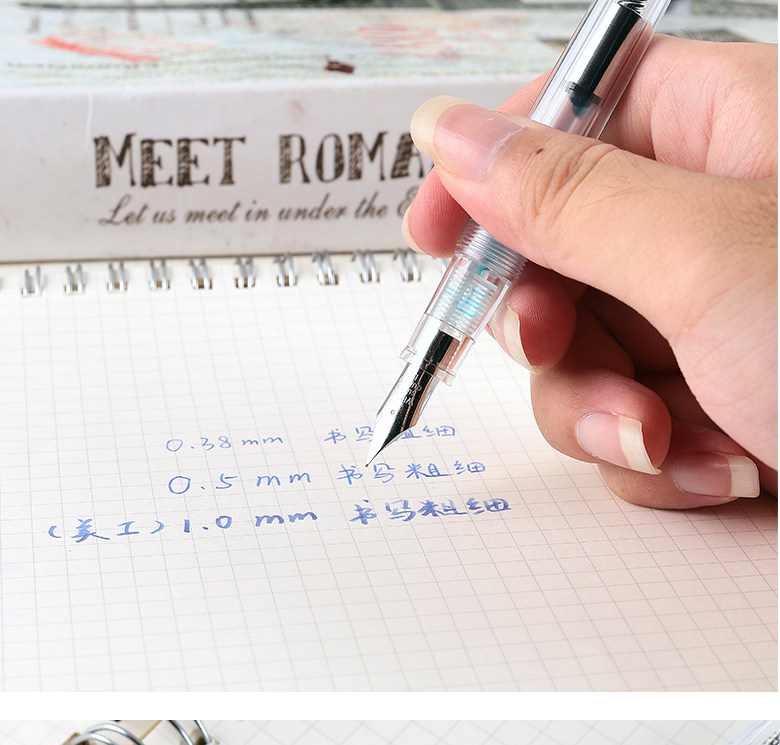 MEET ROMA
Let us meet in under the
0.38 mm 书写粗细
0.5 mm 书写粗细
(美工) 1.0 mm 书写粗细